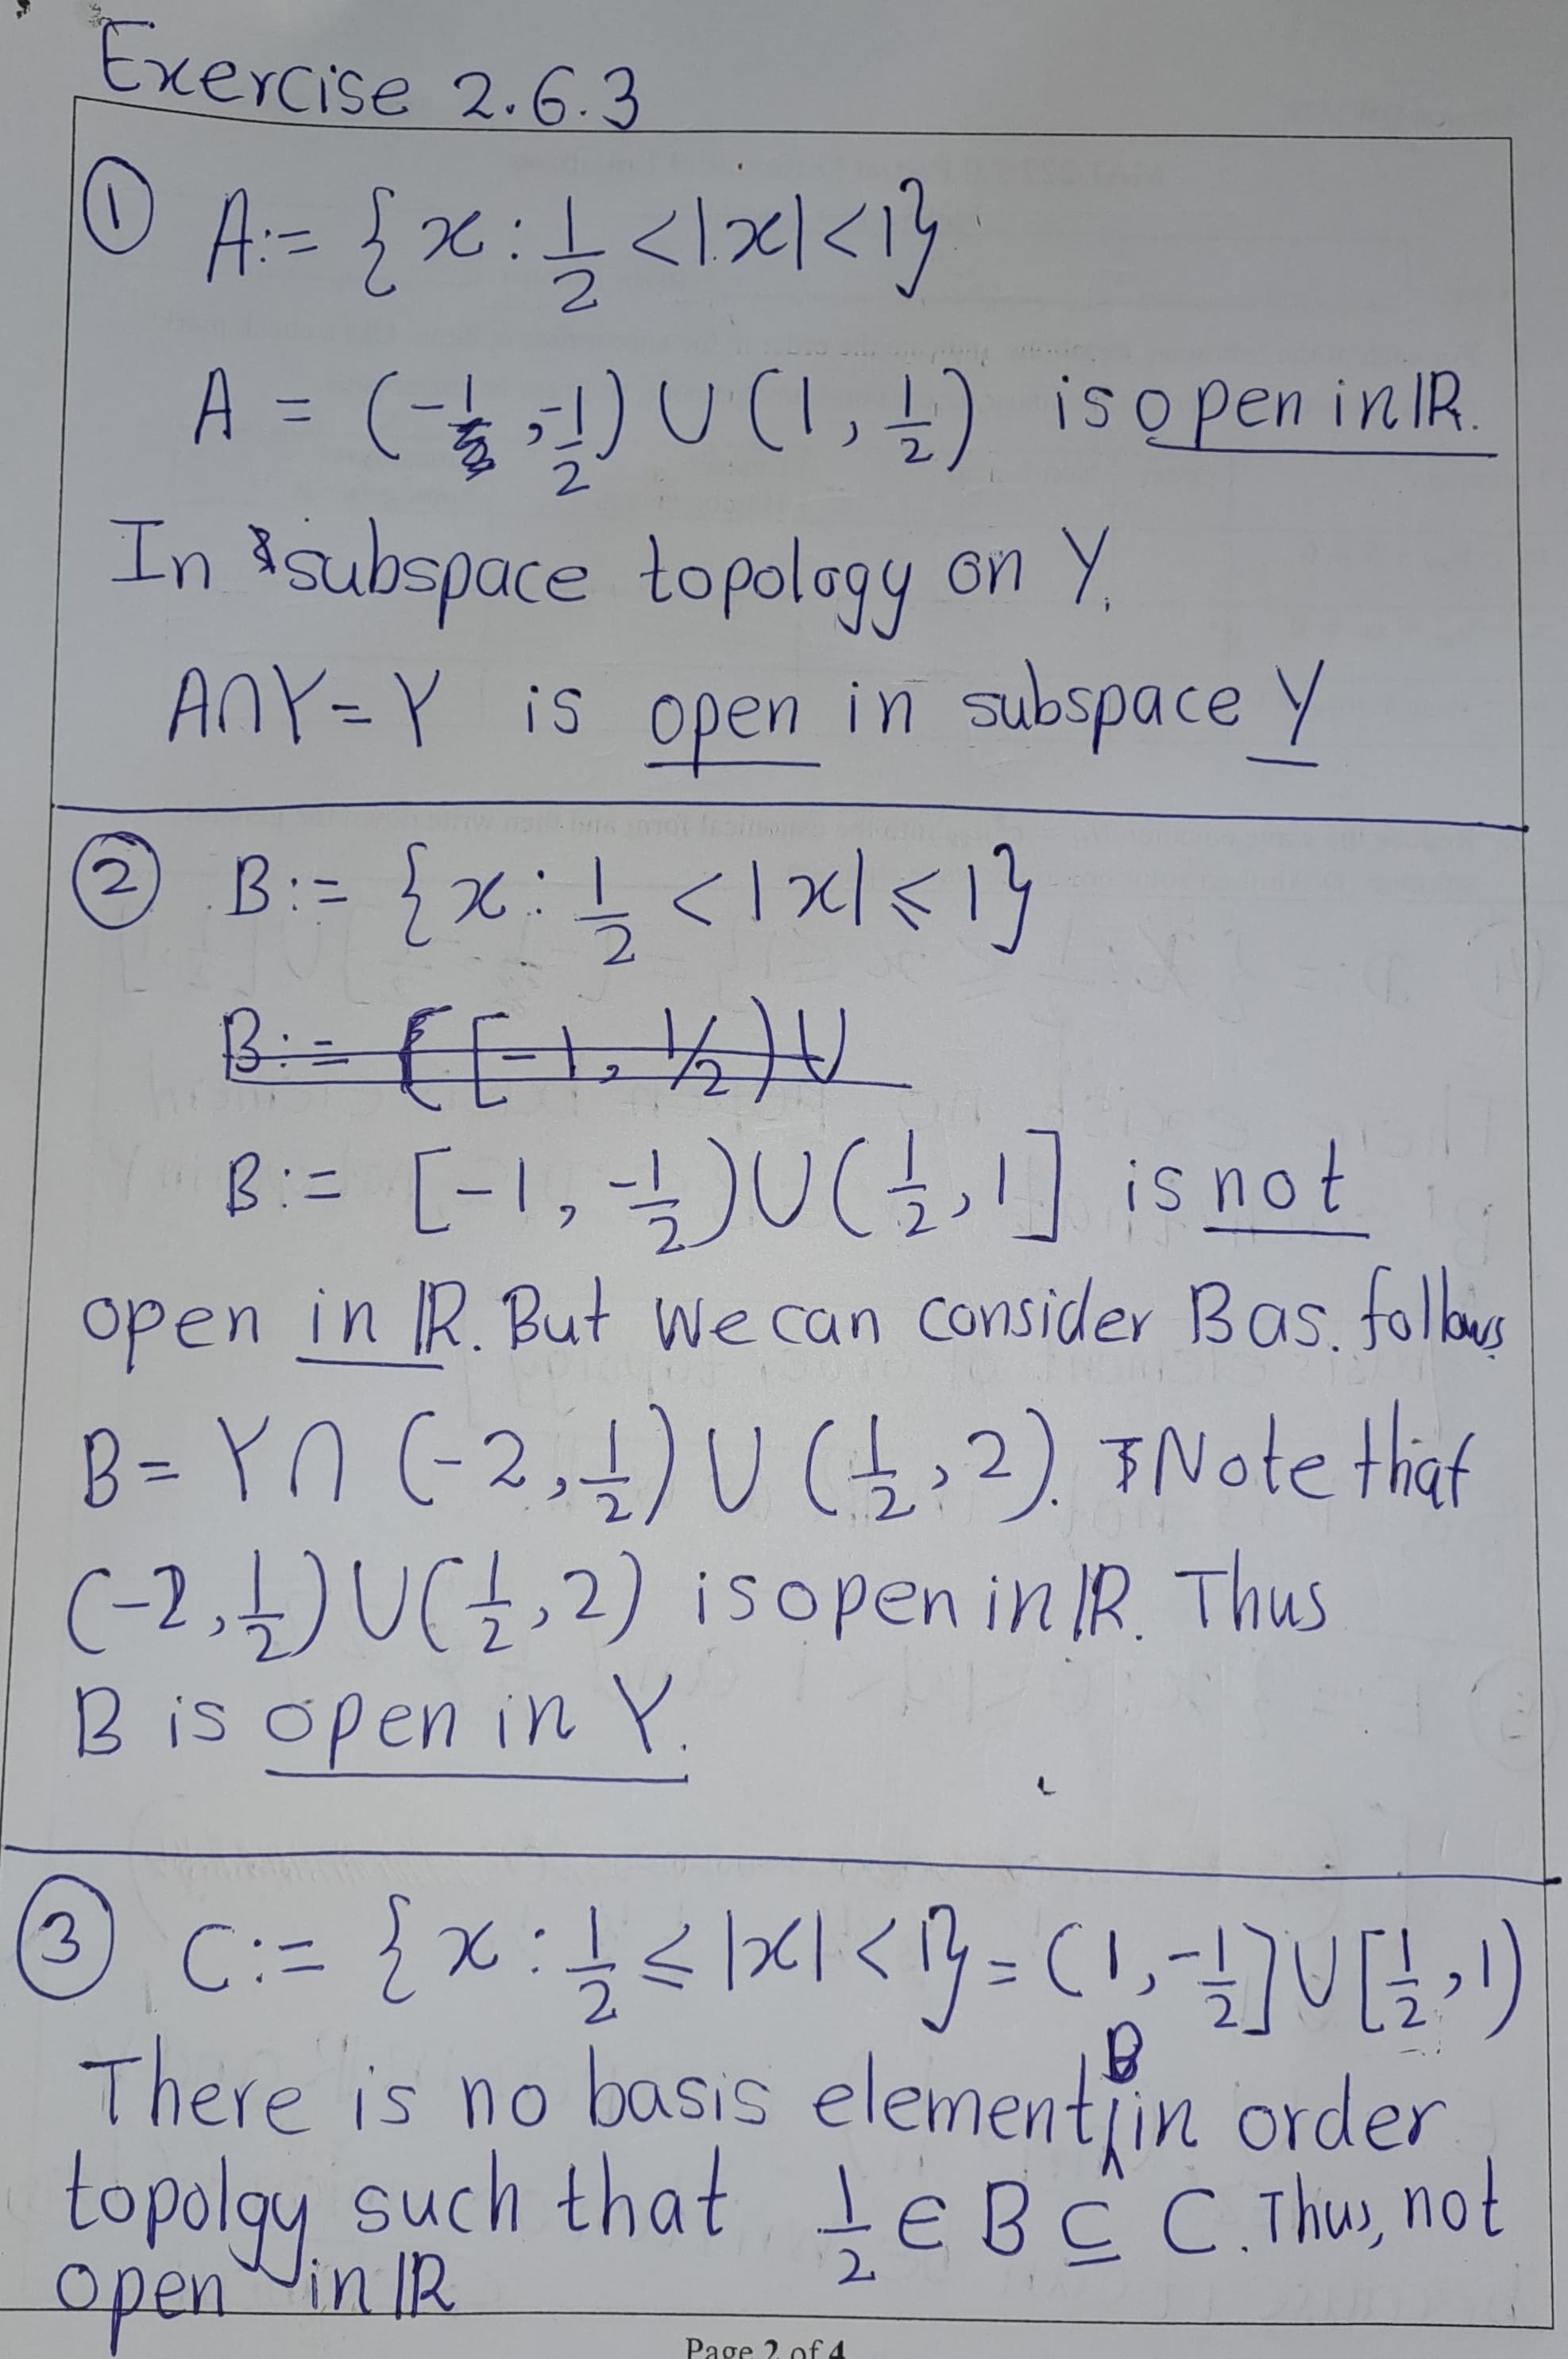 Exercise 2.6.3
① A:= {x : 1/2 < |x| < 1}
A = (-1, -1/2) ∪ (1, 1/2) is open in ℝ.
In subspace topology on Y.
A∩Y = Y is open in subspace Y
② B:= {x : 1/2 < |x| ≤ 1}
B:= [-1, 1/2) ∪
B:= [-1, -1/2) ∪ (1/2, 1] is not
open in ℝ. But we can consider B as. follows
B = Y ∩ (-2, 1/2) ∪ (1/2, 2). Note that
(-2, 1/2) ∪ (1/2, 2) is open in ℝ. Thus
B is open in Y.
③ C:= {x : 1/2 ≤ |x| < 1} = (1, -1/2] ∪ [1/2, 1)
There is no basis element B in order
topolgy such that 1/2 ∈ B ⊆ C. Thus, not
open in ℝ
Page 2 of 4